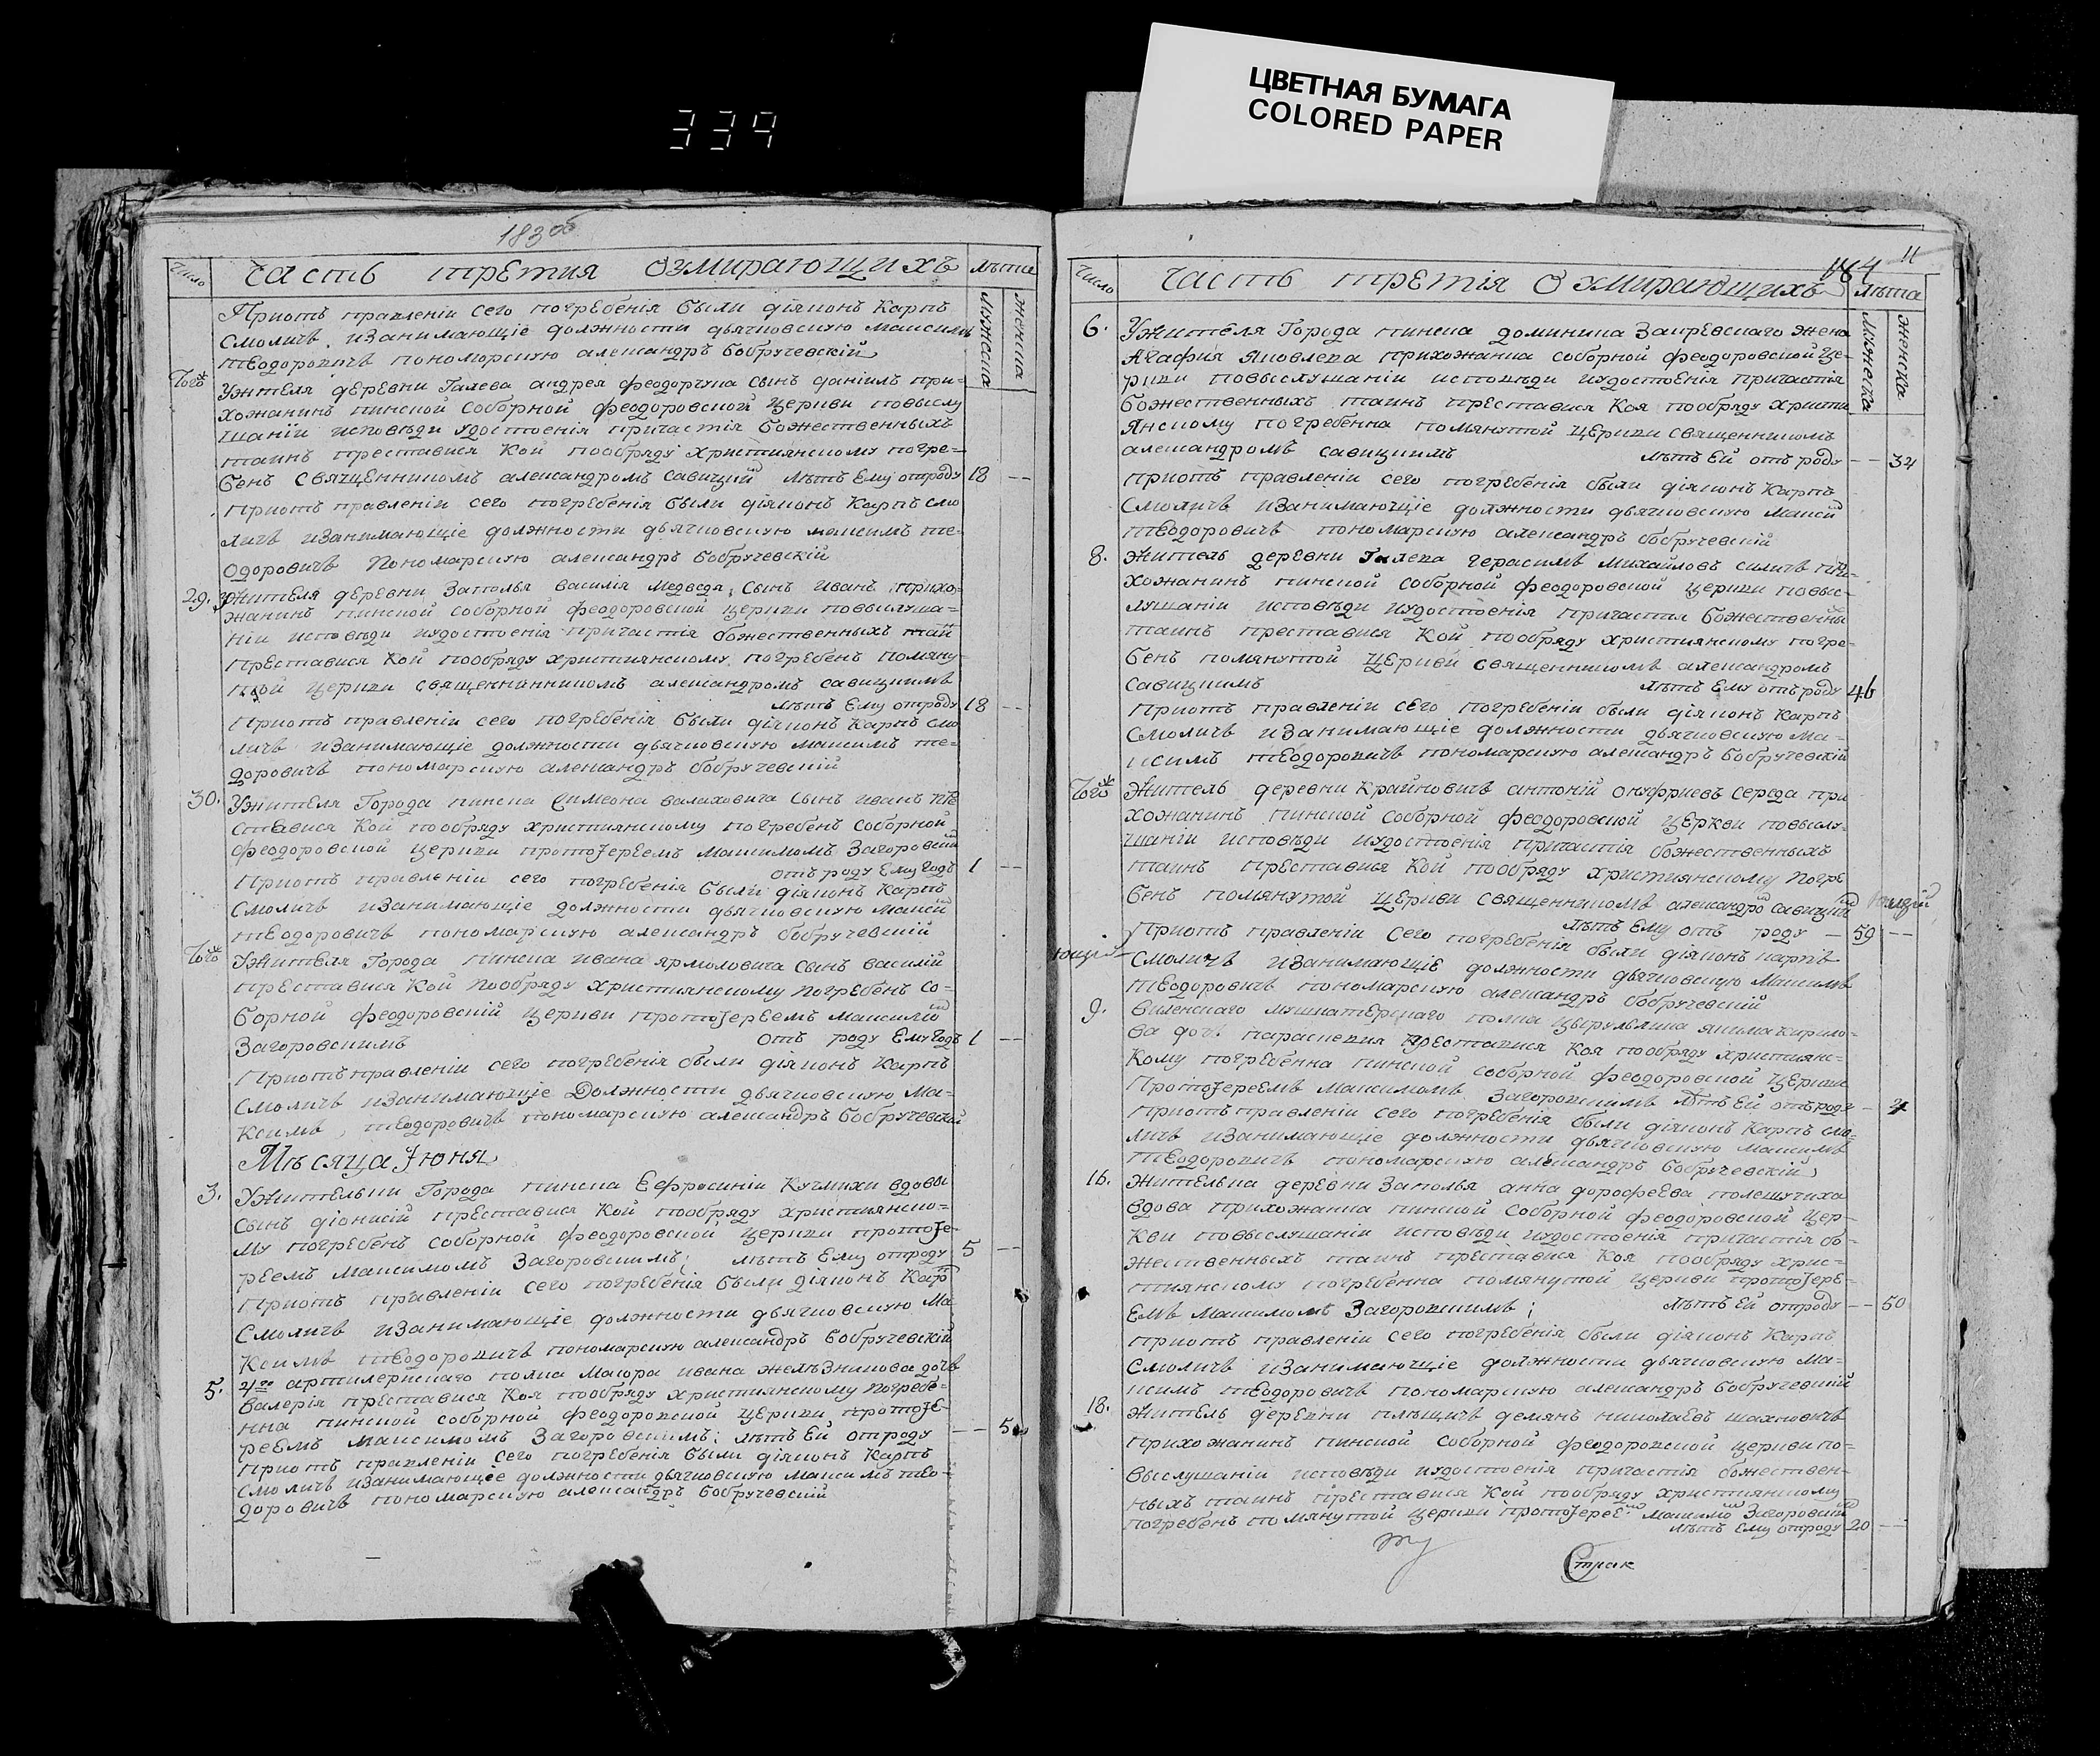 339
ЦВЕТНАЯ БУМАГА
COLORED PAPER
183об
Число
Часть третия О умирающихъ
Лѣта
Мужеска
Женска
Приотъ правленіи сего погребенія были діяконъ Карпъ
Смоличъ, изанимающіе должности дьячковскую Максимъ
теодоровичъ пономорскую александръ бобручевскій
Того ж
Ужителя деревни Галева андрея феодорчука сынъ даніилъ при=
хожанинъ пинской Соборной феодоровской Церкви повыслу
шаніи исповѣди удостоенія причастія божественныхъ
таинъ преставися Кой пообряду Християнскому погре=
бенъ Священникомъ александромъ Савицкій Лѣтъ Ему отроду 18 --
приотъ правленіи сего погребенія были діяконъ Карпъ смо
личъ изанимающіе должности дьячковскую максимъ те=
одоровичъ Пономарскую александръ бобручевскій
29. Ужителя деревни Заполья василія Медведя, Сынъ Иванъ прихо=
жанинъ пинской соборной феодоровской церкви повыслуша=
ніи исповѣди иудостоенія причастія божественныхъ таи
преставися Кой пообряду християнскому погребенъ помяну
той церкви священникомъ александромъ савицкимъ
лѣтъ Ему отроду 18 --
Приотъ правленіи сего погребенія были діяконъ Карпъ смо
личъ изанимающіе должности дьячковскую максимъ те=
доровичъ пономарскую александръ бобручевскій
30. Ужителя Города пинска Симеона валаховича Сынъ Иванъ пре
ставися Кой пообряду християнскому погребенъ соборной
феодоровской церкви протоЈереемъ Максимомъ Загоровски
отъ роду Ему Годъ 1 --
Приотъ правленіи сего погребенія были діяконъ Карпъ
Смоличъ изанимающіе должности дьячковскую максим
теодоровичъ пономарскую александръ бобручевскій
Того ж
Ужителя Города пинска ивана ярмоловича сынъ василій
преставися Кой пообряду християнскому погребенъ со-
борной феодоровскій церкви протоЈереемъ максимо
Загоровскимъ отъ роду Ему Годъ 1 --
Приотъ правленіи сего погребенія были діяконъ Карпъ
Смоличъ изанимающіе Должности дьячковскую Ма-
ксимъ, теодоровичъ пономарскую александръ бобручевский
Мѣсяца Јюня
3. Ужительки Города пинска Еефросиніи Кучмихи вдовы
сынъ діонисій преставися Кой пообряду християнско=
му погребенъ соборной феодоровской церкви протоЈе-
реемъ Максимомъ Загоровшимъ; лѣтъ Ему отроду 5 --
Приотъ правленіи сего погребенія были діяконъ Кар
Смоличъ изанимающіе должности дьячковскую Ма
ксимъ теодоровичъ пономарскую александръ бобручевскій
5. 4го артилерискаго полка Маіора ивана желѣзникова дочь
Валерія преставися Коя пообряду християнскому погребе-
нна пинской соборной феодоровской церкви протоЈе-
реемъ Максимомъ Загоровскимъ; лѣтъ Ей отроду -- 5
приотъ правленіи сего погребенія были діяконъ Карпъ
Смоличъ изанимающее должности дьячковскую максимъ тео-
доровичъ пономарскую александръ бобручевскій
184 11
Число
Часть третія О умирающихъ
Лѣта
Мужеска
Женска
6. Ужителя Города пинска доминика Закревскаго жена
Агафия Яковлева прихожанка соборной феодоровской це-
ркви повыслушаніи исповѣди иудостоенія причастія
божественныхъ таинъ преставися Коя пообряду христи
янскому погребенна помянутой церкви священникомъ
александромъ савицкимъ лѣтъ Ей отъ роду -- 34
приотъ правленіи сего погребенія были діяконъ Карпъ
Смоличъ изанимающіе должности дьячковскую Макси
теодоровичъ пономарскую александръ бобручевскій
8. житель деревни Галева герасимъ Михайловъ силичъ при-
хожанинъ пинской соборной феодоровской церкви повыс-
лушаніи исповѣди иудостоенія причастія божественны
таинъ преставися Кой пообряду християнскому погре-
бенъ помянутой церкви священникомъ александромъ
савицкимъ лѣтъ Ему отъ роду 46
приотъ правленіи сего погребеніи были діяконъ Карпъ
Смоличъ изанимающіе должности дьячковскую Ма-
ксимъ теодоровичъ пономарскую александръ бобручевскій
Того ж
житель деревни Крайновичъ антоній онуфриевъ середа при
хожанинъ пинской соборной феодоровской церкви повыслу-
шаніи исповѣди иудостоенія причастія божественныхъ
таинъ преставися Кой пообряду християнскому погре
бенъ помянутой церкви священникомъ александро савицки
лѣтъ Ему отъ роду -- 59 --
Приотъ правленіи Сего погребенія были діяконъ карпъ
Смоличъ изанимающіе должности дьячковскую Максимъ
теодоровичъ пономарскую александръ бобручевскій
9. виленскаго мушкатерскаго полка цырульника якима кирило-
ва дочь параскевия преставися Коя пообряду християнс=
кому погребенна пинской соборной феодоровской церкви
ПротоЈереемъ Максимомъ Загоровшимъ лѣтъ Ей отъроду --
приотъ правленіи сего погребенія были діяконъ Карпъ смо-
личъ изанимающіе должности дьячковскую Максимъ
теодоровичъ пономарскую александръ бобручевскій
16. жителька деревни Заполья анна дорофеева полешучиха
вдова прихожанка пинской соборной феодоровской цер-
кви повыслушаніи исповѣди иудостоенія причастія бо-
жественныхъ таинъ преставися Коя пообряду хрис-
тиянскому погребенна помянутой церкви протоЈере-
емъ Максимомъ Загоровшимъ; лѣтъ Ей отроду -- 50
приотъ правленіи сего погребенія были діяконъ Карпъ
Смоличъ изанимающіе должности дьячковскую Ма-
ксимъ теодоровичъ пономарскую александръ бобручевский
18. житель деревни плѣщичъ демянъ николаевъ шахновичъ
прихожанинъ пинской соборной феодоровской церкви по-
выслушаніи исповѣди иудостоенія причастія божествен-
ныхъ таинъ преставися Кой пообряду християнскому
погребенъ помянутой церкви протоЈерее максимо Загоровски
лѣтъ Ему отроду 20 --